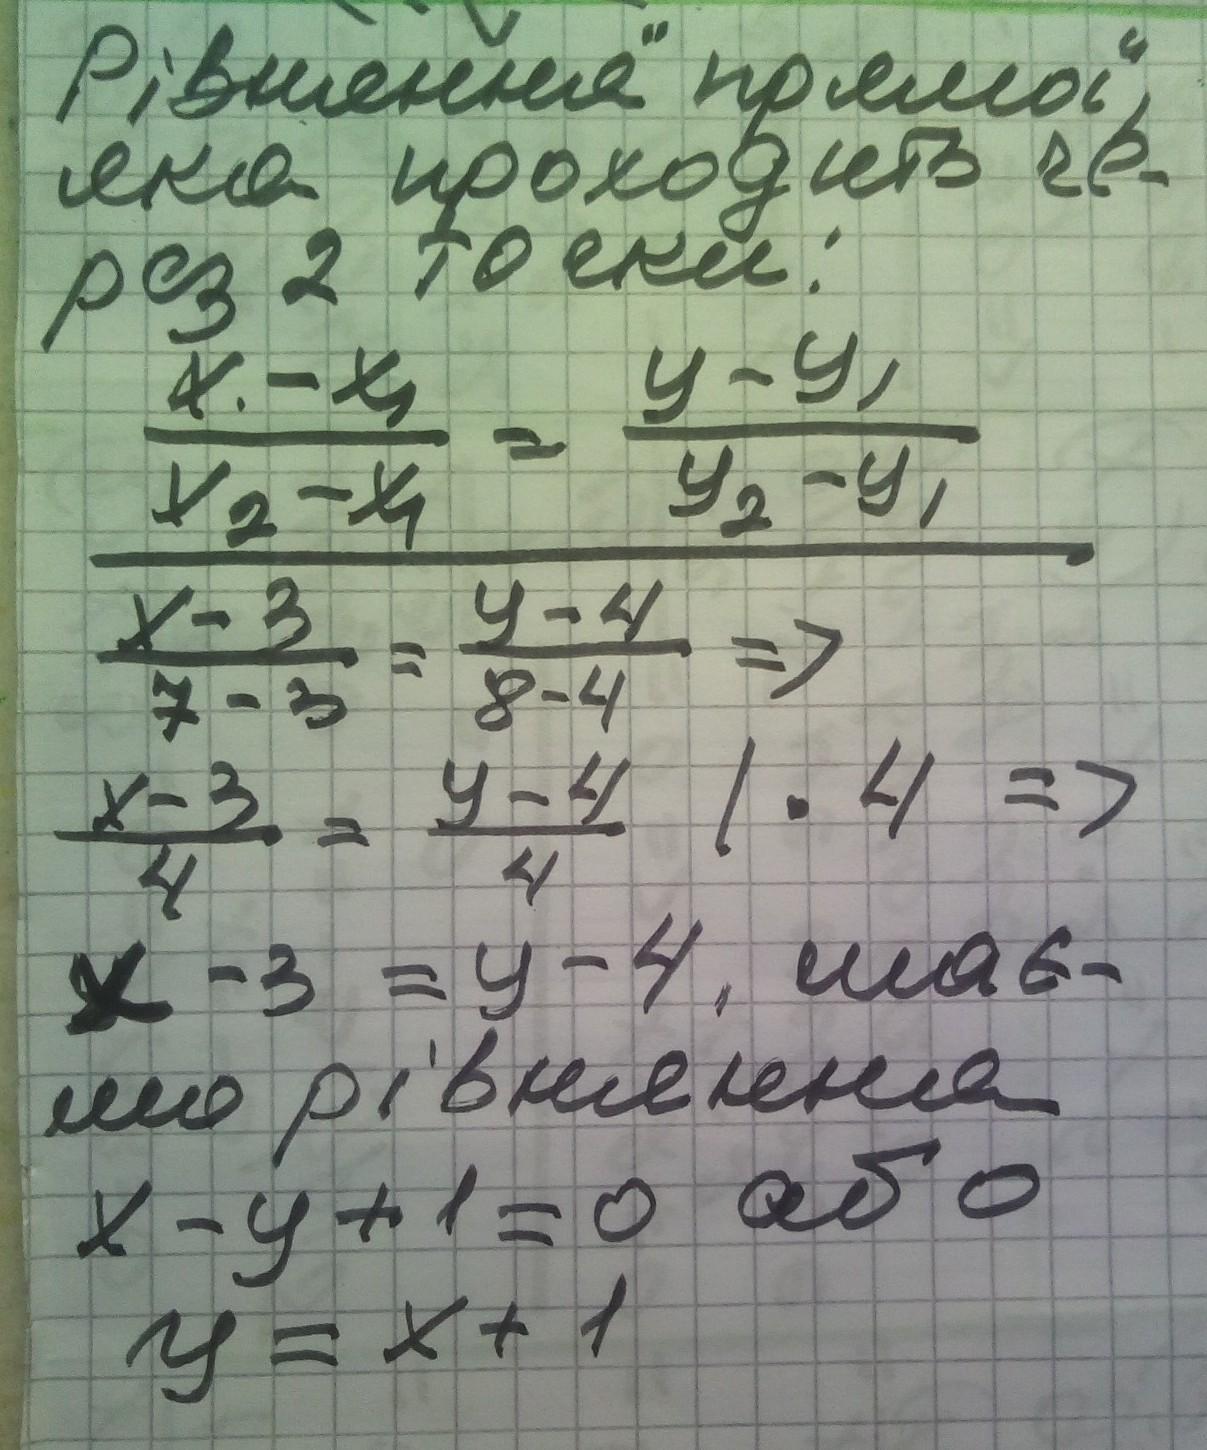 Рівняння "прямої",
яка проходить че-
рез 2 точки:
x - x₁ / x₂ - x₁ = y - y₁ / y₂ - y₁
x - 3 / 7 - 3 = y - 4 / 8 - 4 =>
x - 3 / 4 = y - 4 / 4 | · 4 =>
x - 3 = y - 4, має-
мо рівняння
x - y + 1 = 0 або
y = x + 1